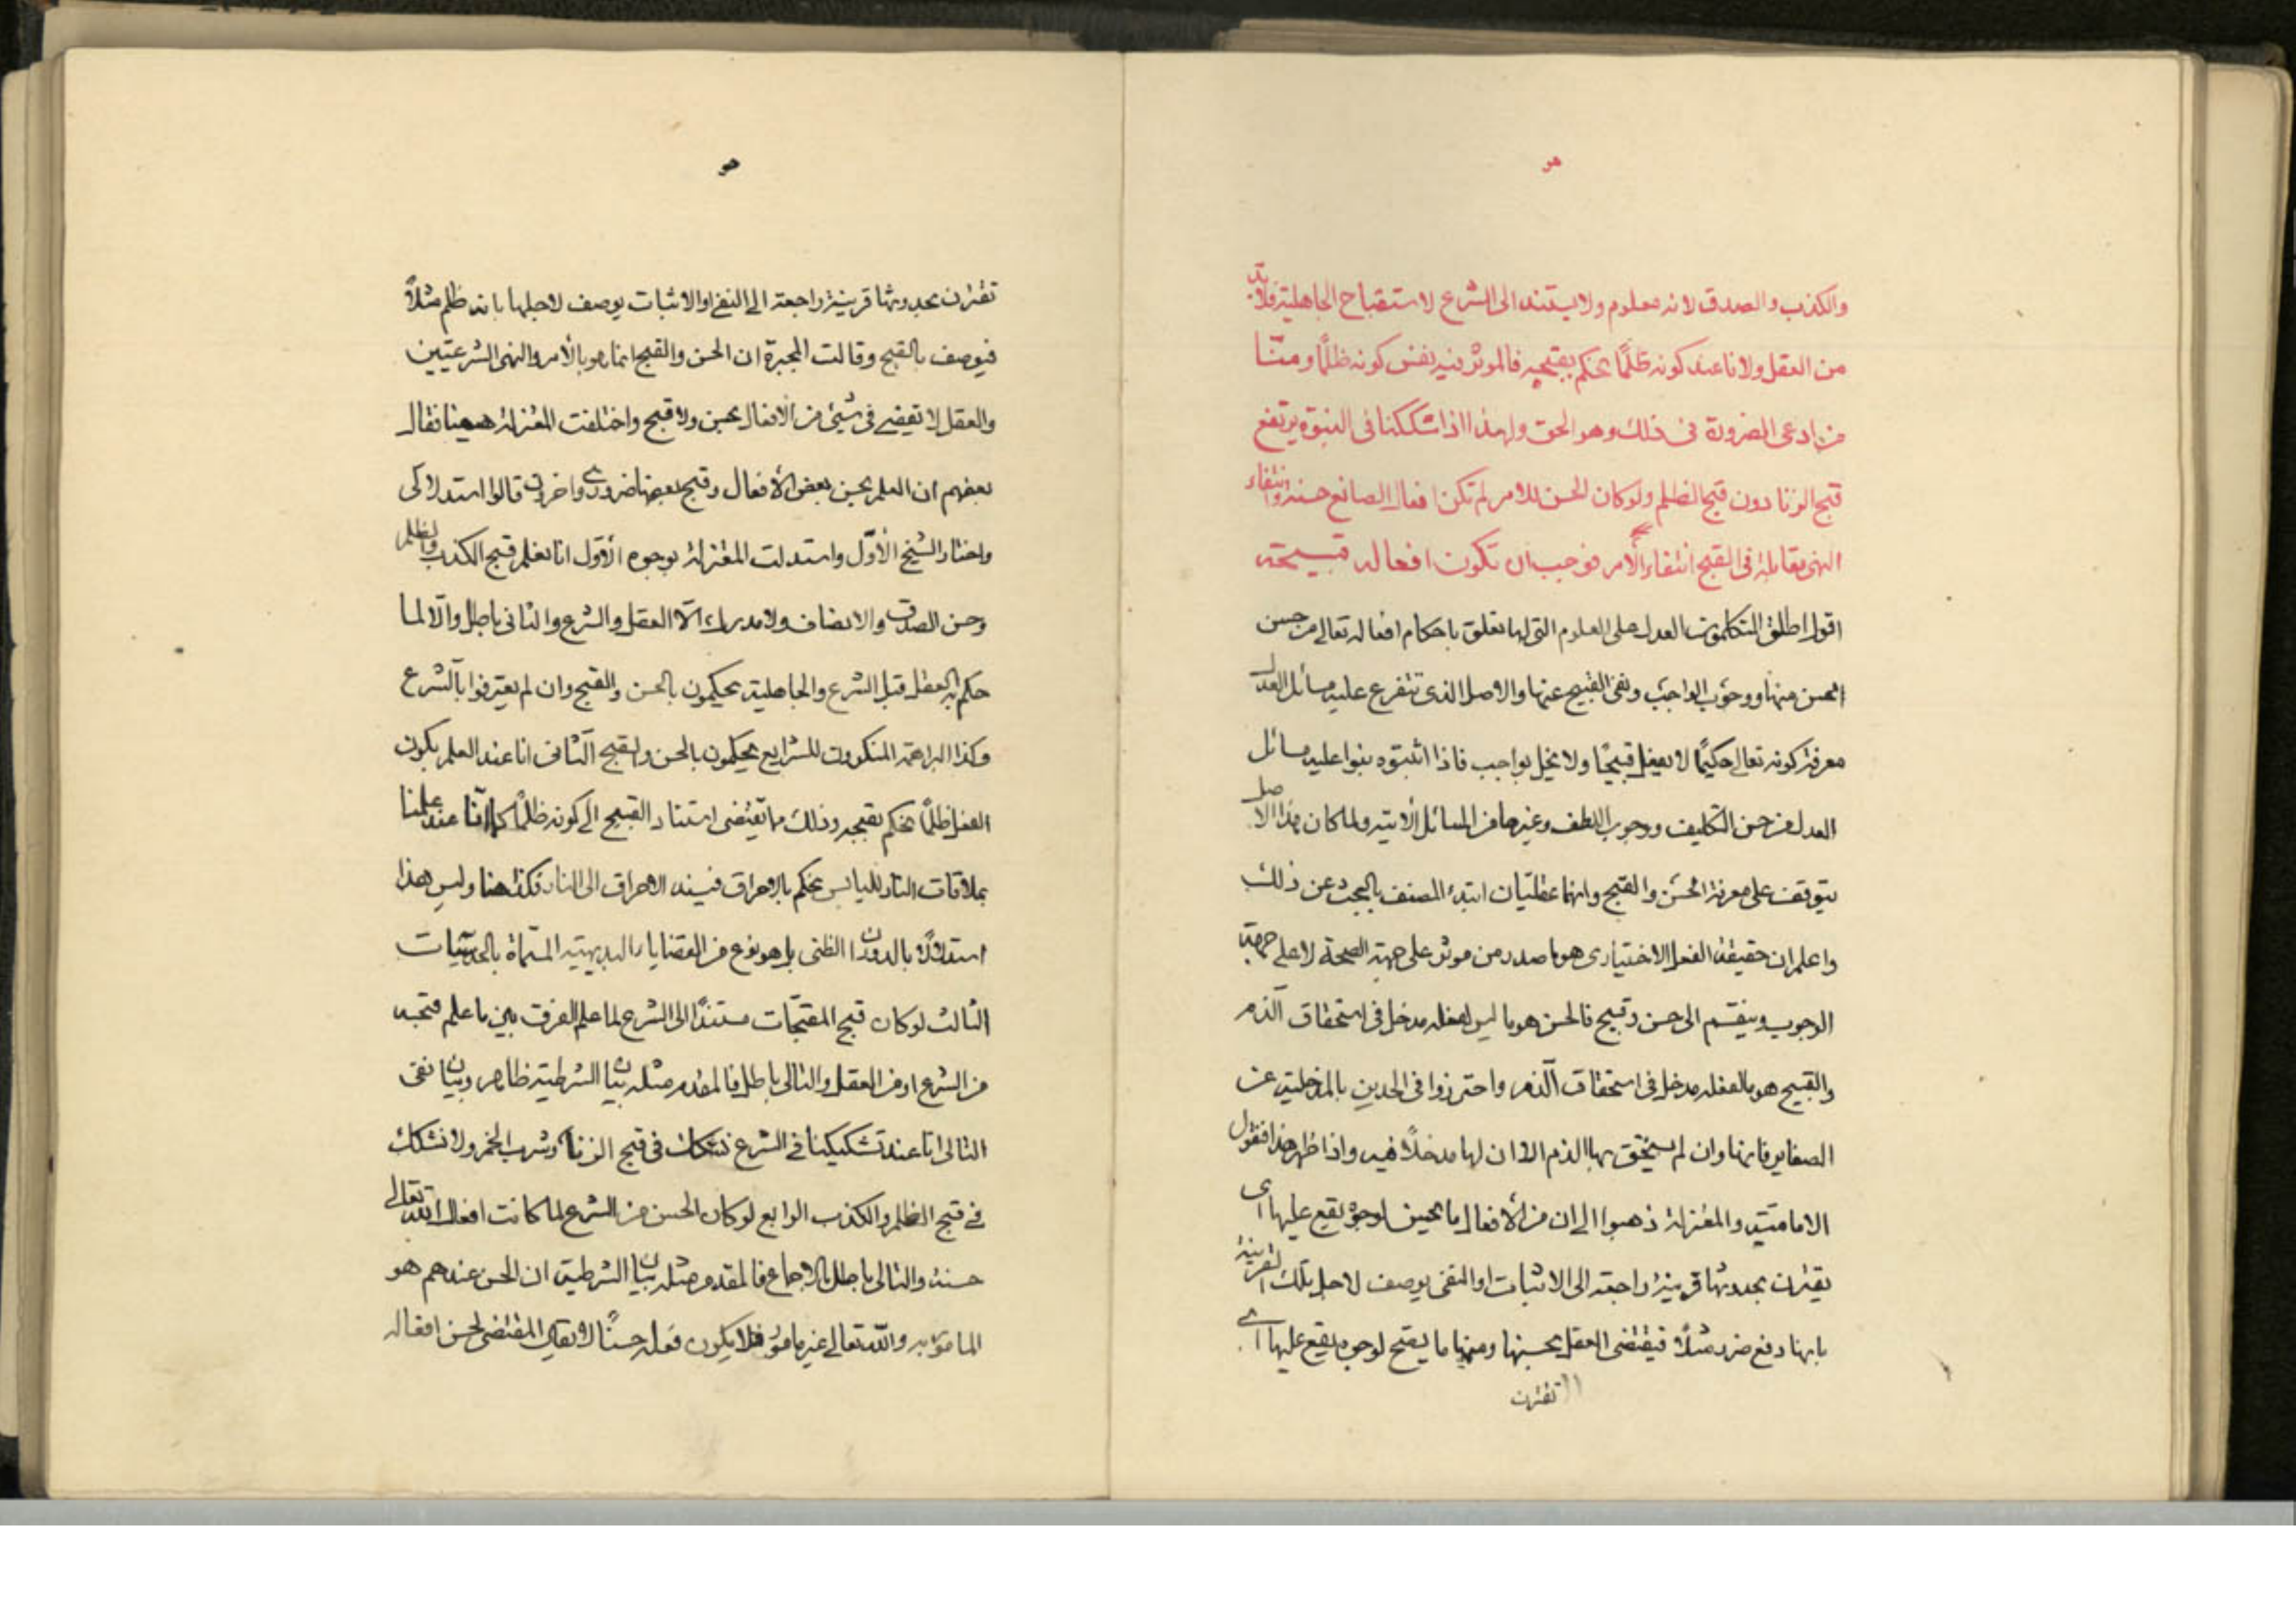 هو
والكذب والصدق لانه معلوم ولا يستند الى الشرع لاستقباح الجاهلية فلا بد
من العقل ولانا عند كونه ظلمًا نحكم بقبحه فالموثر فيه نفس كونه ظلمًا ومنّا
من ادعى الضرورة فى ذلك وهو الحق ولهذا اذا شككنا فى النبوّة يرتفع
قبح الزنا دون قبح الظلم ولو كان الحسن للامر لم تكن افعال الصانع حسنة وانتفاء
النهى مقابلة فى القبح انتفاء الأمر فوجب ان تكون افعاله قبيحة
اقول اطلق المتكلمون العدل على العلوم التى لها تعلق باحكام افعاله تعالى من حسن
الحسن منها ووجوب الواجب ونفى القبيح عنها والاصل الذى تتفرع عليه مسائل العدل
معرفة كونه تعالى حكيمًا لا يفعل قبيحًا ولا يخل بواجب فاذا اثبتوه بنوا عليه مسائل
العدل من حسن التكليف ووجوب اللطف وغيرها من المسائل الأتية ولما كان هذا الاصل
يتوقف على معرفة الحسن والقبح وانهما عقليان ابتدء المصنف بالبحث عن ذلك
واعلم ان حقيقة الفعل الاختيارى هو ما صدر من موثر على جهة الصحة لا على جهة
الوجوب وينقسم الى حسن وقبيح فالحسن هو ما ليس لفعله مدخل فى استحقاق الذم
والقبيح هو ما لفعله مدخل فى استحقاق الذم واحترزوا فى الحدين بالمدخلية عن
الصغاير فانها وان لم يستحق بها الذم الا ان لها مدخلًا فيه واذا ظهر هذا فنقول
الامامية والمعتزلة ذهبوا الى ان من الأفعال ما يحسن لوجوه يقع عليها اى
يقترن بحدوثها قرينة راجعة الى الاثبات او النفى يوصف لاجل تلك القرينة
بانها دفع ضرر مثلًا فيقتضى العقل بحسنها ومنها ما يقبح لوجوه يقع عليها اى
تقترن
هو
تقترن بحدوثها قرينة راجعة الى النفى او الاثبات يوصف لاجلها بانه ظلم مثلًا
فيوصف بالقبح وقالت المجبرة ان الحسن والقبح انما هو بالأمر والنهى الشرعيّين
والعقل لا تقضى فى شيئ من الأفعال بحسن ولا قبح واختلفت المعتزلة ههنا فقال
بعضهم ان العلم بحسن بعض الأفعال وقبح بعضها ضرورى واخرون قالوا استدلالى
واختار الشيخ الأوّل واستدلت المعتزلة بوجوه الأول انا نعلم قبح الكذب والظلم
وحسن الصدق والانصاف ولا مدرك الّا العقل والشرع والثانى باطل والّا لما
حكم به العقل قبل الشرع والجاهلية يحكمون بالحسن والقبح وان لم يعترفوا بالشرع
وكذا البراهمة المنكرون للشرايع يحكمون بالحسن والقبح الثانى انا عند العلم بكون
الفعل ظلمًا نحكم بقبحه وذلك مما يقتضى استناد القبح الى كونه ظلمًا كما انّا عند علمنا
بملاقات النار لليابس نحكم بالاحراق فنسند الاحراق الى النار فكذا هنا وليس هذا
استدلالًا بالدوران الظنى بل هو نوع من القضايا البديهية المسمّاة بالحدسيّات
الثالث لو كان قبح المقبّحات مستندًا الى الشرع لما علم الفرق بين ما علم قبحه
من الشرع او من العقل والتالى باطل فالمقدم مثله بيان الشرطية ظاهر وبيان نفى
التالى انا عند تشكيكنا فى الشرع نشكك فى قبح الزنا وشرب الخمر ولا نشكك
فى قبح الظلم والكذب الرابع لو كان الحسن من الشرع لما كانت افعال الله تعالى
حسنة والتالى باطل بالاجماع فالمقدم مثله بيان الشرطية ان الحسن عندهم هو
المامور به والله تعالى غير مامور فلا يكون فعله حسنًا لا يقال المقتضى لحسن افعاله